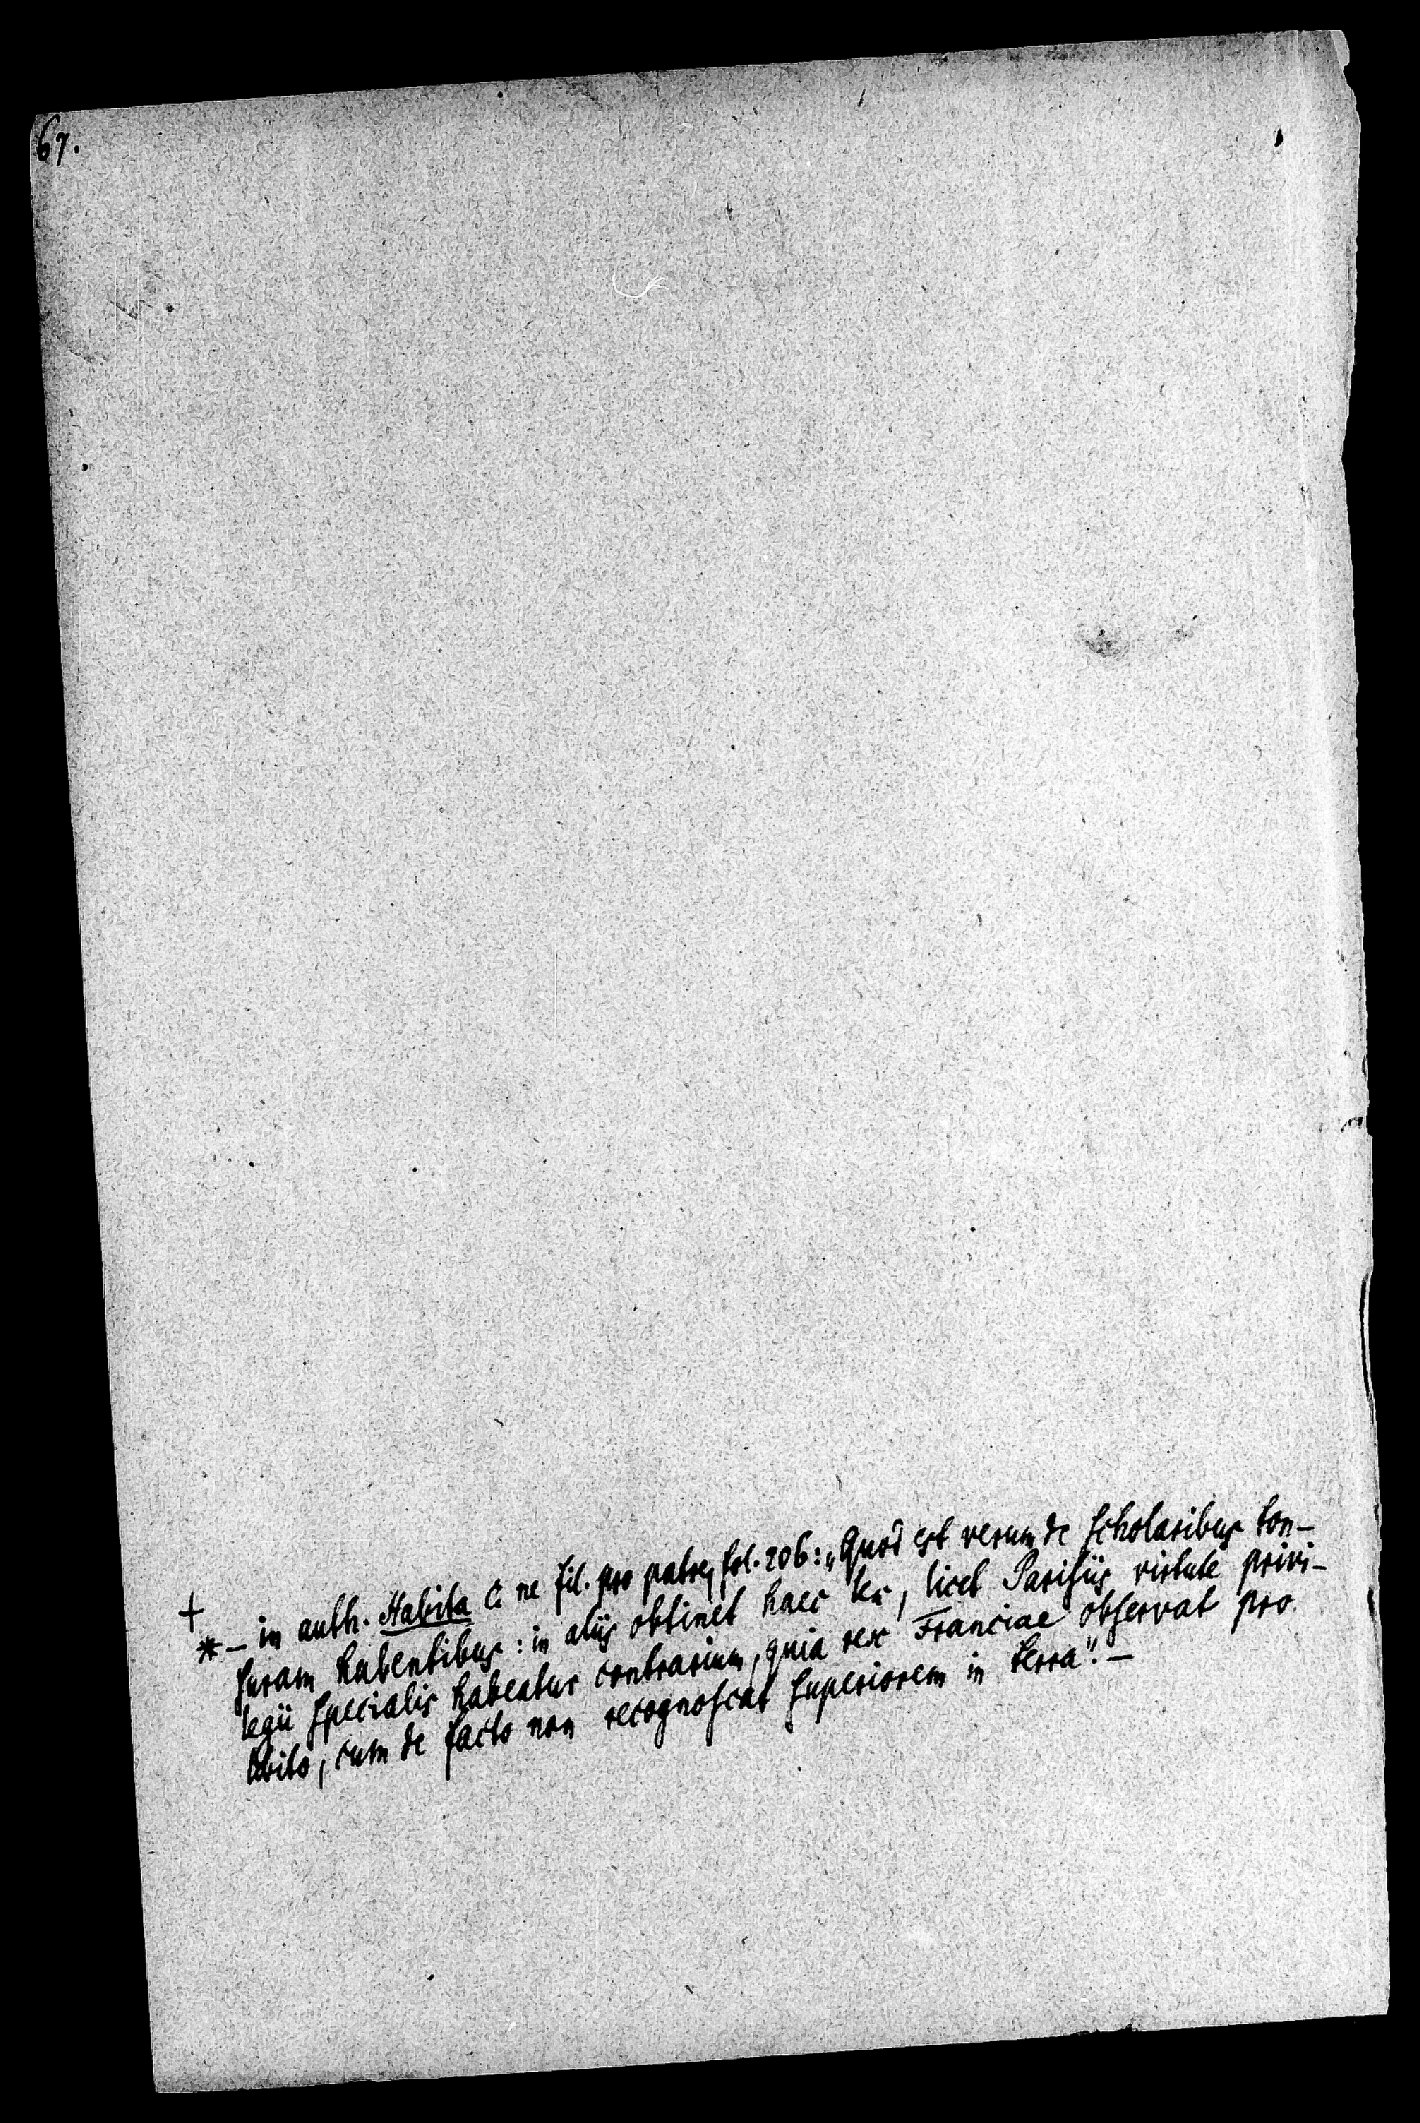 67.
+
* – in auth. Habita C. ne fil. pro patre, fol. 206: „Quod est verum de scholaribus ton-
suram habentibus: in aliis obtinet haec lex, licet Parisiis virtute privi-
legii specialis habeatur contrarium, quia rex Franciae observat pro
libito, cum de facto non recognoscat superiorem in terra“. –